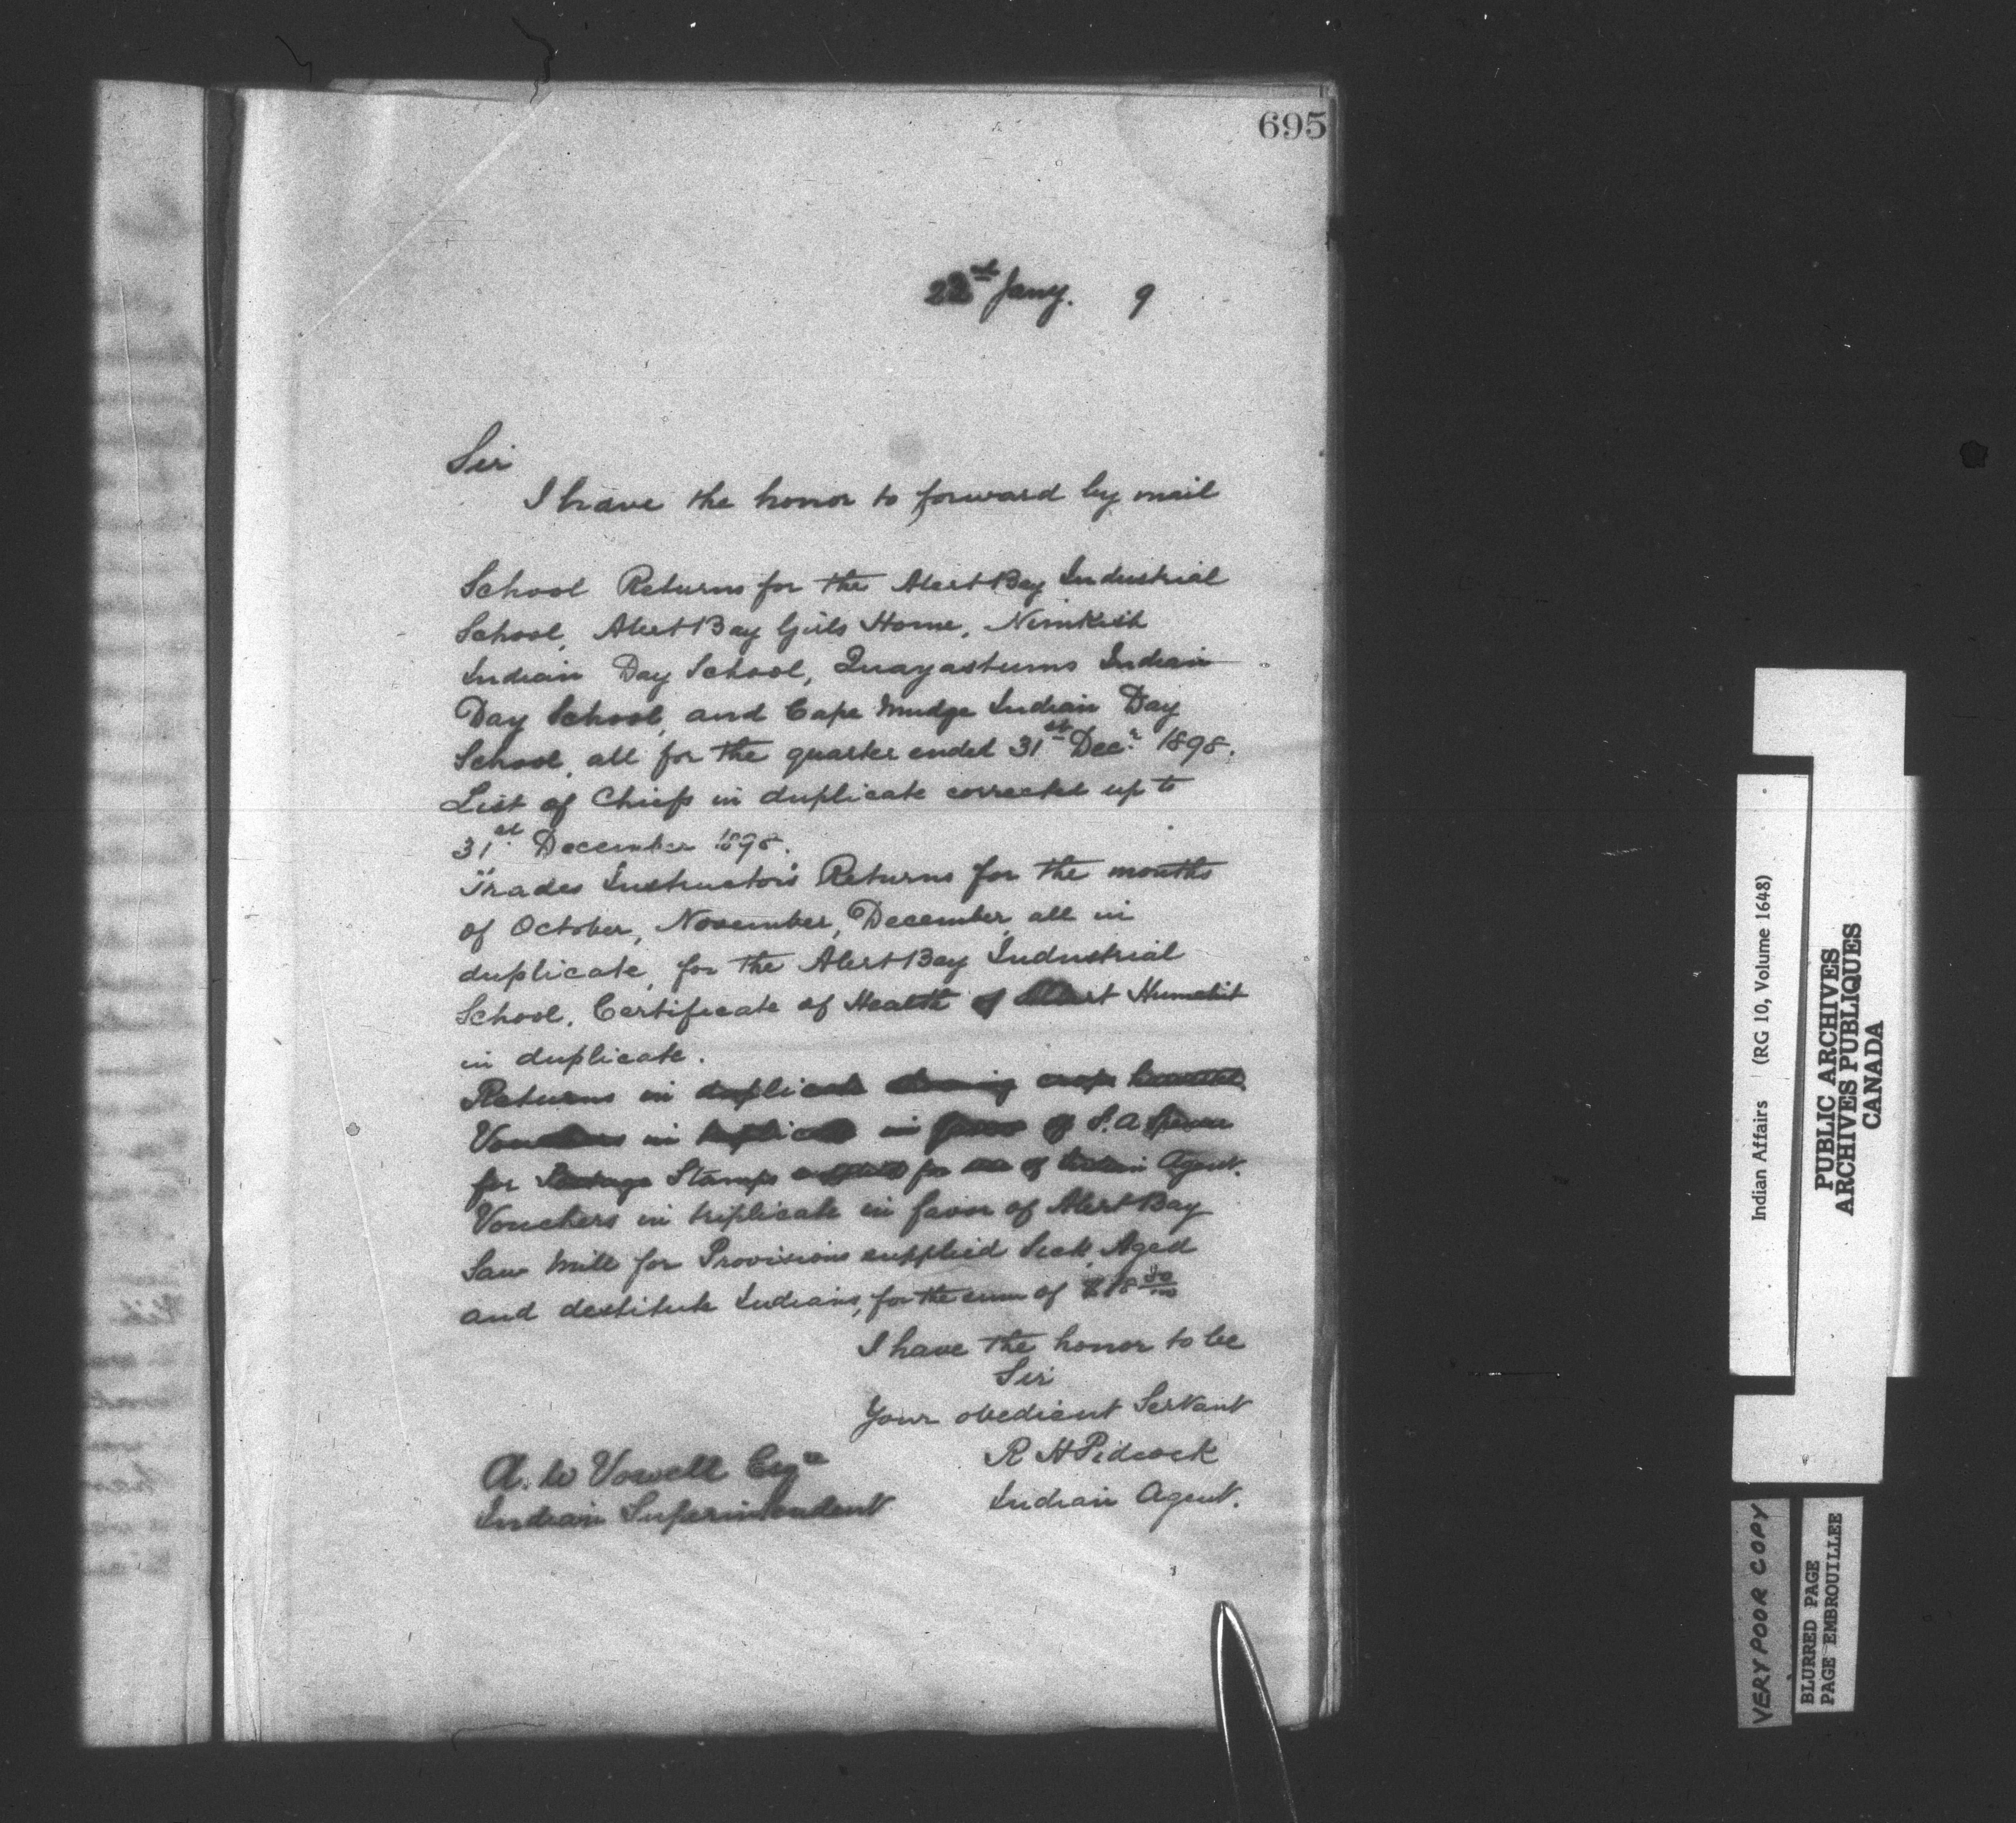 695
Jany. 9
Sir
I have the honor to forward by mail
School Returns for the Alert Bay Industrial
School, Alert Bay Girls Home, Nimkish
Indian Day School, Quayastums Indian
Day School, and Cape Mudge Indian Day
School, all for the quarter ended 31st Decr. 1898.
List of Chiefs in duplicate corrected up to
31st December 1898.
Trades Instructor's Returns for the months
of October, November, December, all in
duplicate, for the Alert Bay Industrial
School. Certificate of Health of
in duplicate.
Returns in duplicate showing crops harvested
Vouchers in triplicate in favor of S. A Spencer
for Postage Stamps supplied for use of Indian Agent.
Vouchers in triplicate in favor of Alert Bay
Saw Mill for Provisions supplied Sick, Aged
and destitute Indians, for the sum of
I have the honor to be
Sir
Your obedient Servant
R H Pidcock
Indian Agent.
A. W Vowell Esqre
Indian Superintendent
Indian Affairs (RG 10, Volume 1648)
PUBLIC ARCHIVES
ARCHIVES PUBLIQUES
CANADA
VERY POOR COPY
BLURRED PAGE
PAGE EMBROUILLEE